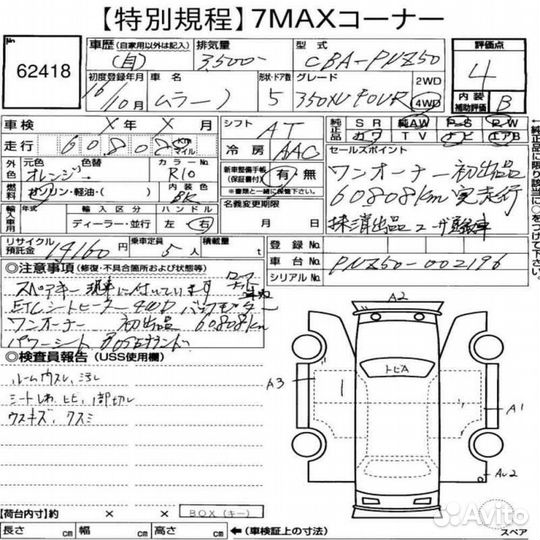 【特別規程】7MAXコーナー
No 62418
車歴 (自家用以外は記入) (自)
排気量 3500
型式 CBA-PNZ50
評価点 4
初度登録年月 16/10月
車名 ムラーノ
形状・ドア数 5
グレード 350XV FOUR
2WD
4WD
内装補助評価 B
車検 × 年 × 月
シフト AT
純正品 SR 純AW P-S P-W
カワ TV ナビ エアB
走行 60808 km マイル
冷房 AAC
セールスポイント
ワンオーナー 初出品
60808km 実走行
外色 元色 オレンジ 色替 カラーNo. R10
新車整備手帳(保証書付) 有・無
燃料 ガソリン・軽油・( ) 内装色 BK
名義変更期限 月 日
輸入車用 年式 輸入区分 ハンドル
ディーラー・並行 左 右
リサイクル預託金 円
乗車定員 5人
積載量 t
登録No.
車台No. PNZ50-002196
シリアルNo.
◎注意事項 (修復・不具合箇所および状態等)
スペアキー 現車に付いています
ETC シートヒーター 4WD バックモニター
ワンオーナー 初出品 60808km
パワーシート BOSEサウンド
◎検査員報告 (USS使用欄)
ルームウスレ、ヨゴレ
シートしわ、ヒビ、1部切レ
ウスキズ、クスミ
A2
トビA
A3
A1
【荷台内寸】約 × ×
BOX(キー)
長さ cm 幅 cm 高さ cm (車検証上の寸法)
スペア
Avito